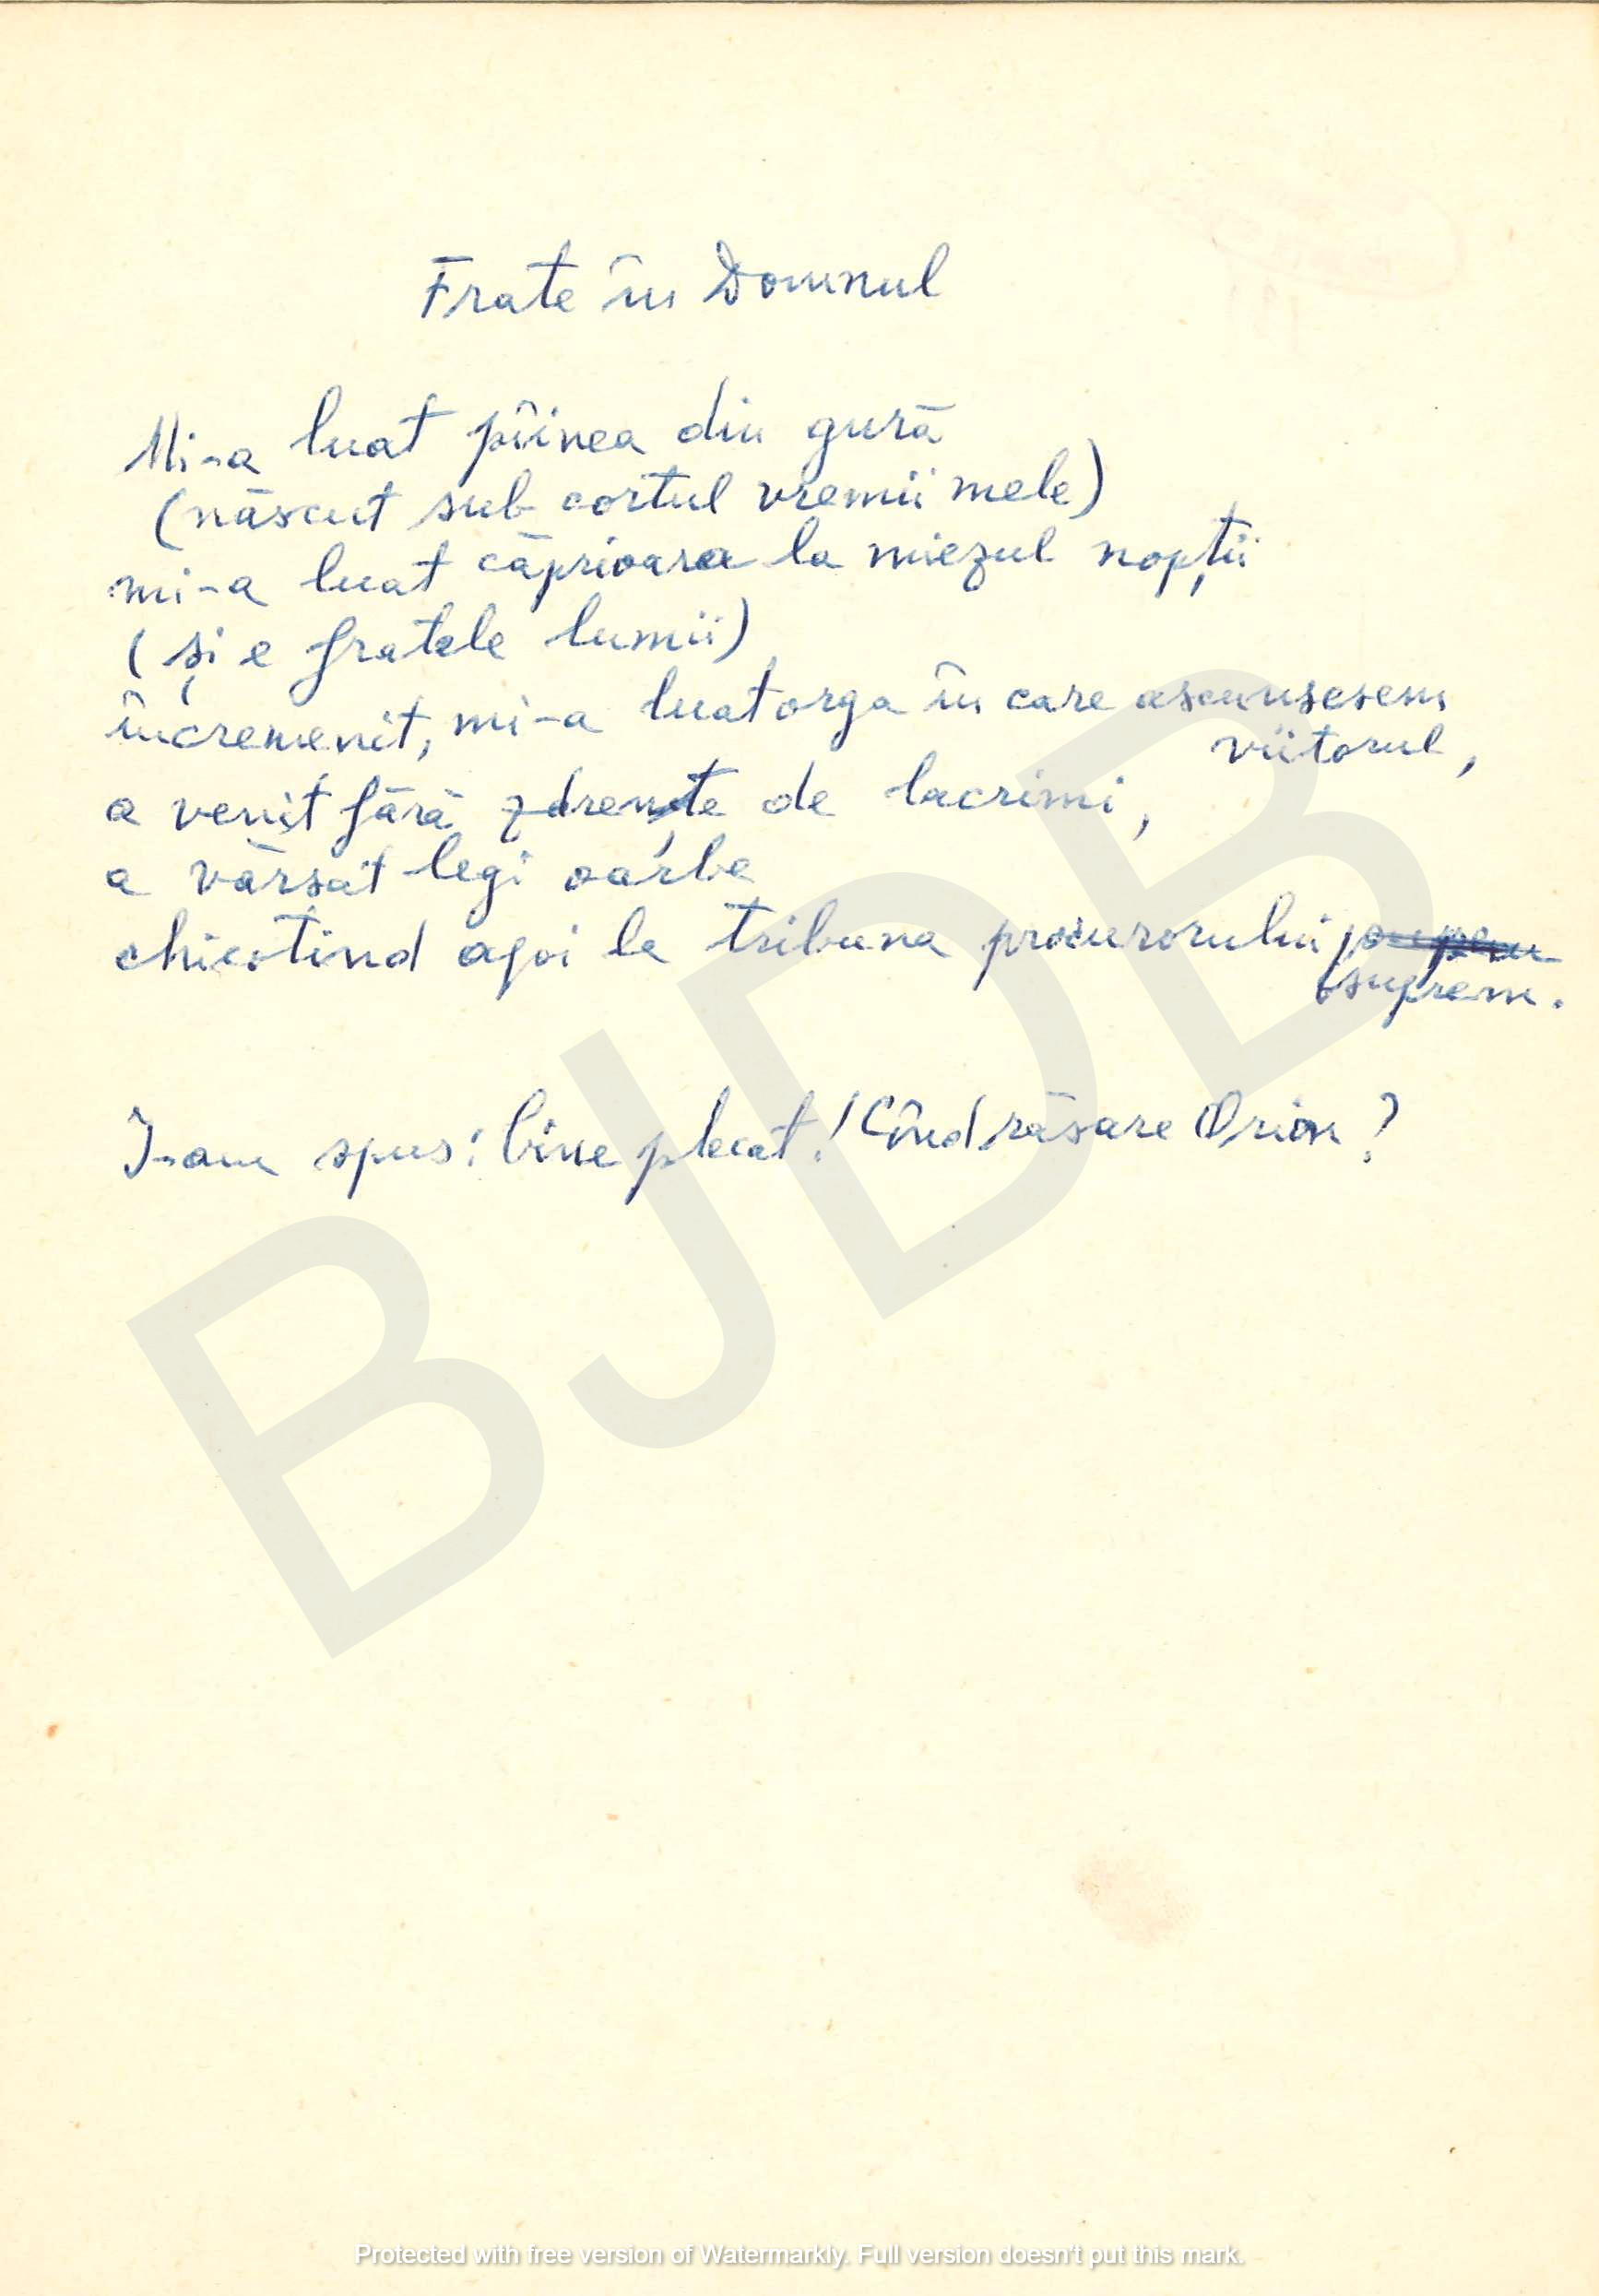 Frate în Domnul
Mi-a luat pîinea din gură
(născut sub cortul vremii mele)
mi-a luat căprioara la miezul nopții
(și e fratele lumii)
încremenit, mi-a luat orga în care ascunsesem
viitorul,
a venit fără zdrențe de lacrimi,
a vărsat legi oarbe
chicotind apoi la tribuna procurorului
suprem.
I-am spus: bine plecat! Cînd răsare Orion?
BJDB
Protected with free version of Watermarkly. Full version doesn't put this mark.